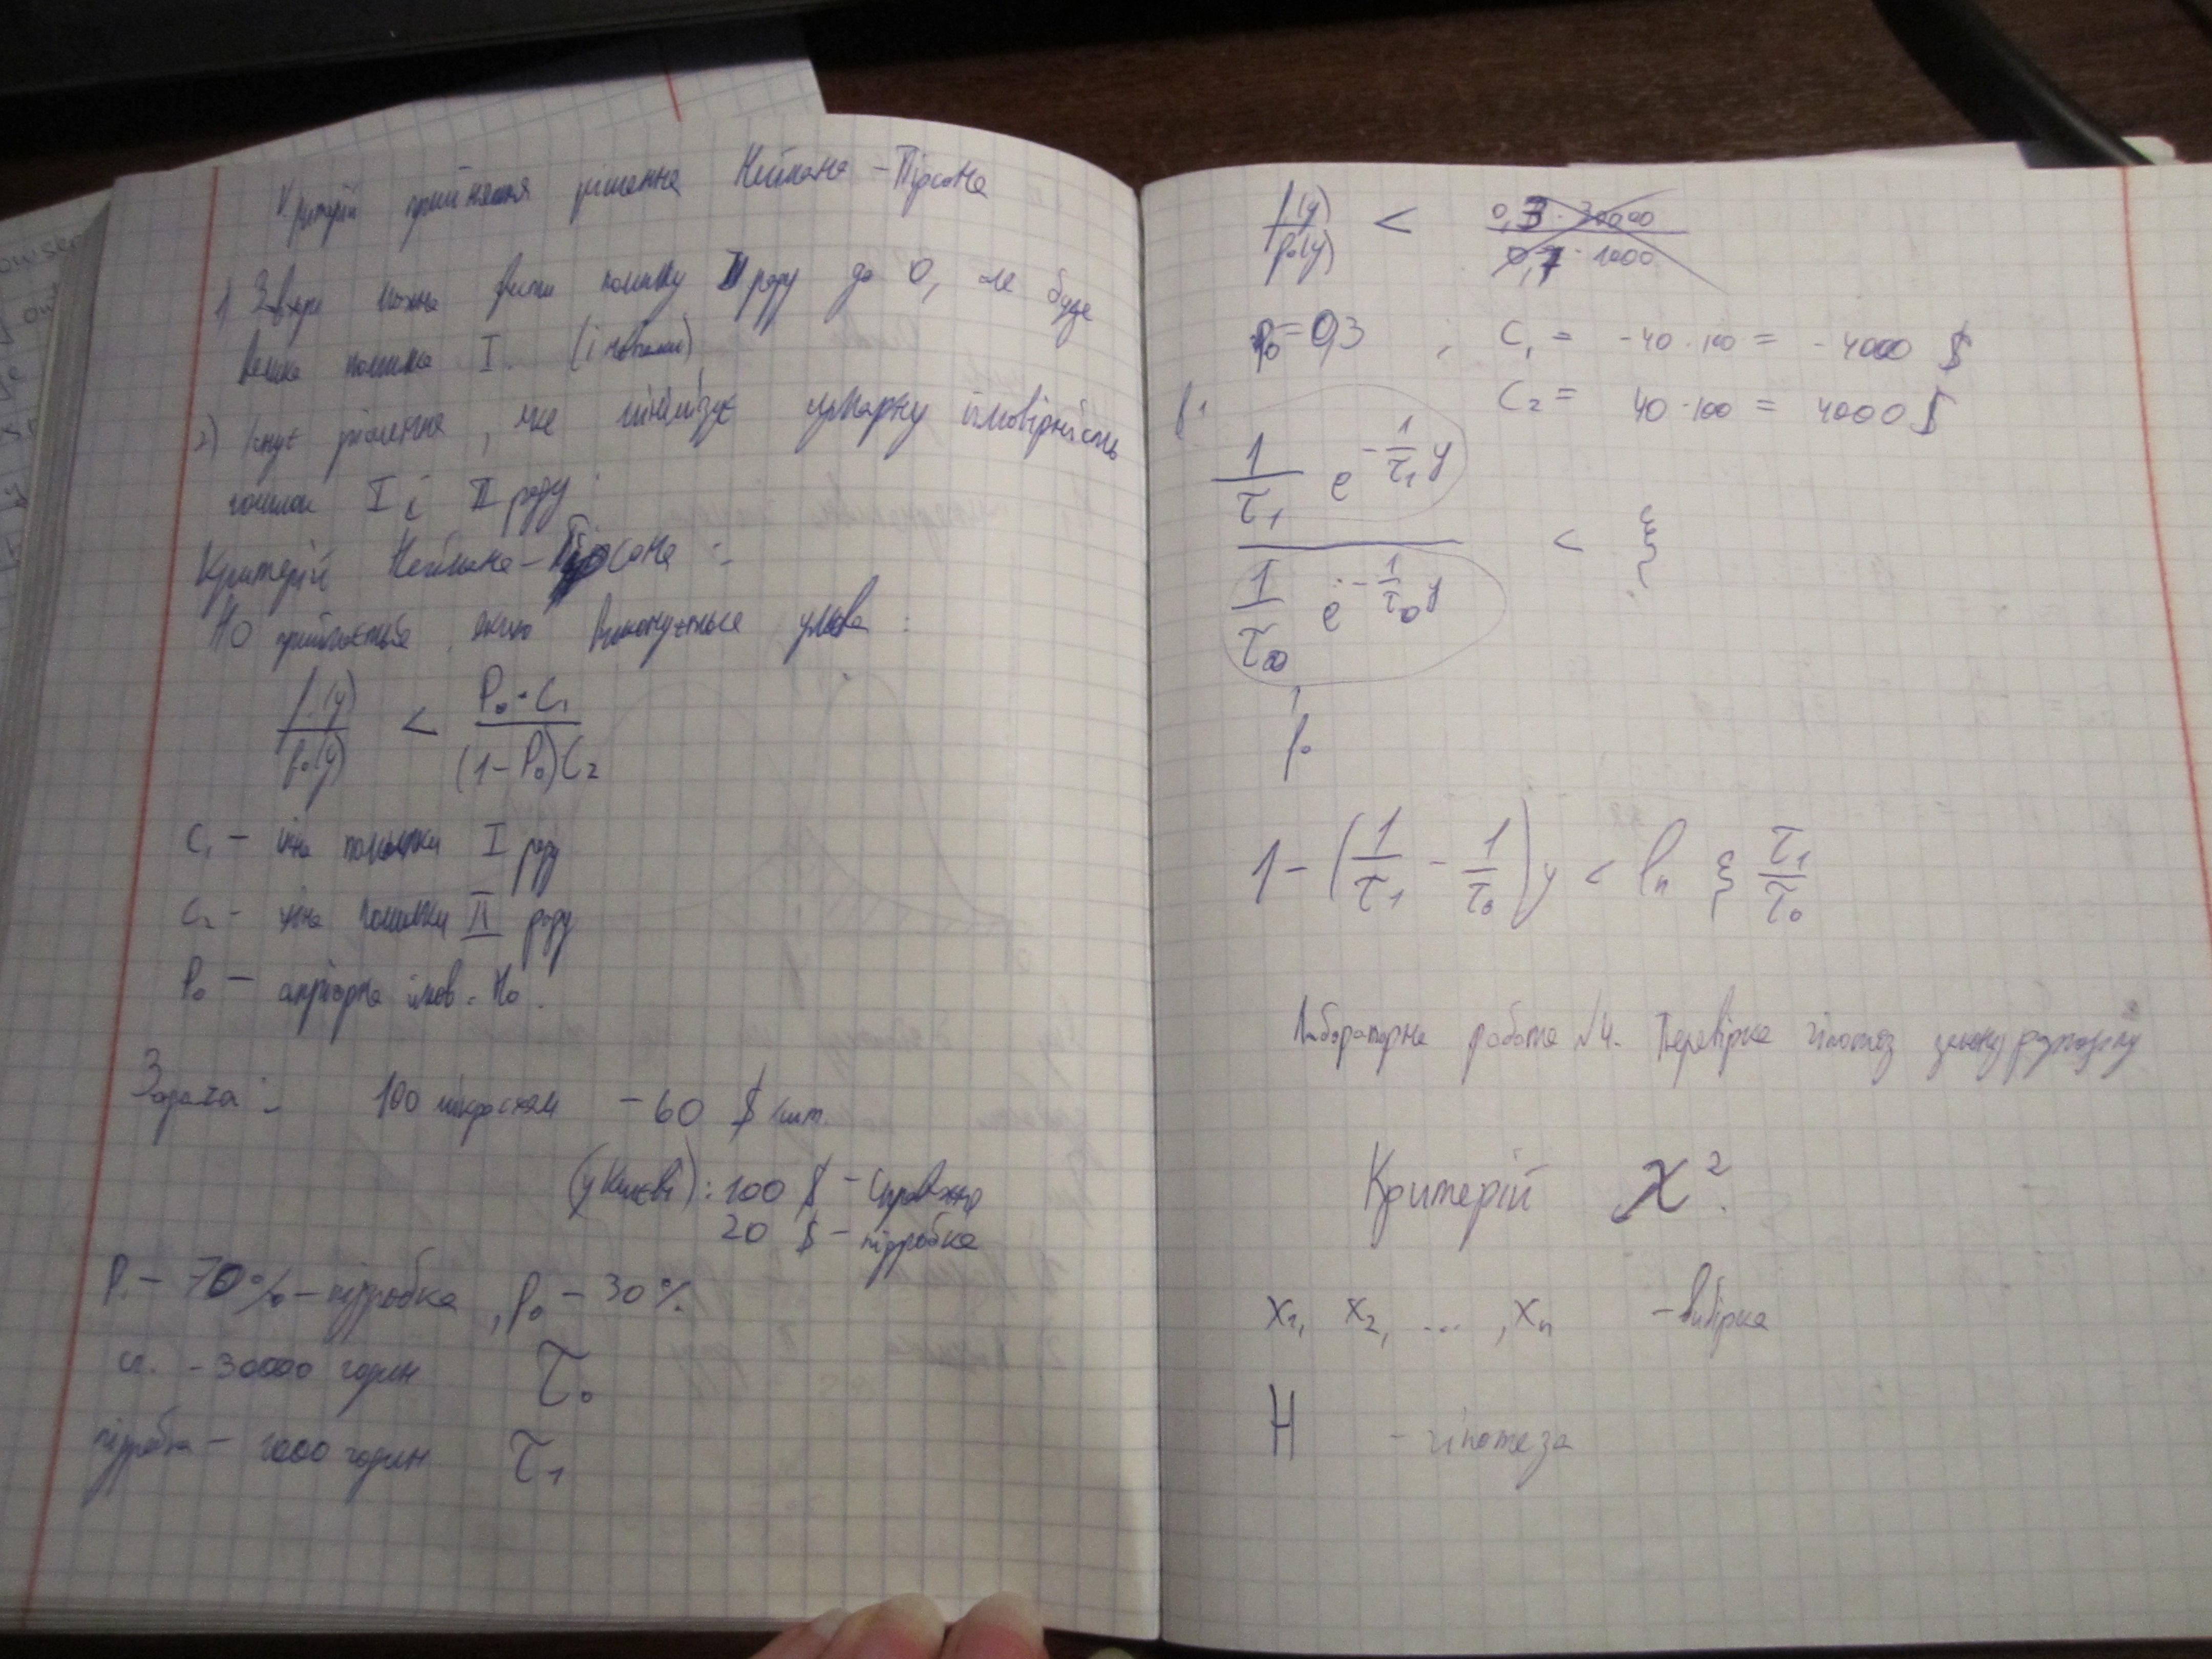 Критерій прийняття рішення Неймана - Пірсона
1) Завжди можна звести помилку II роду до 0, але буде
велика помилка I. (і навпаки)
2) Існує рішення, яке мінімізує сумарну ймовірність
помилок I і II роду.
Критерій Неймана - Пірсона :
H0 приймається, якщо виконується умова :
f₁(y) / f₀(y) < P₀ · C₁ / (1 - P₀) C₂
C₁ - ціна помилки I роду
C₂ - ціна помилки II роду
P₀ - апріорна імов. H₀.
Задача : 100 мікросхем - 60 $ шт.
(у Києві) : 100 $ - справжня
20 $ - підробка
P₁ - 70% - підробка, P₀ - 30%
- 30000 годин τ₀
підробка - 1000 годин τ₁
f₁(y) / f₀(y) < 0,3 · 30000 / 0,7 · 1000
P₀ = 0,3 ; C₁ = -40 · 100 = -4000 $
C₂ = 40 · 100 = 4000 $
f₁
1/τ₁ e^(-1/τ₁ y) / 1/τ₀ e^(-1/τ₀ y) < ξ
f₀
1 - (1/τ₁ - 1/τ₀) y < ln ξ τ₁/τ₀
Лабораторна робота №4. Перевірка гіпотез закону розподілу
Критерій χ².
x₁, x₂, ... , xₙ - вибірка
H - гіпотеза